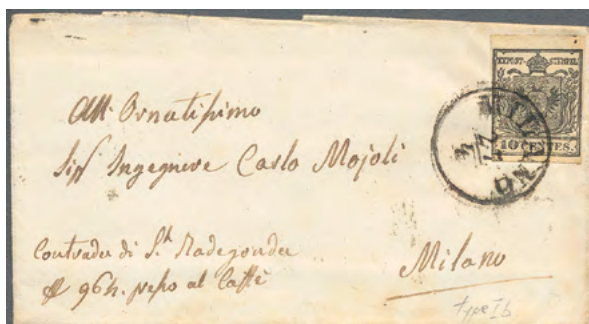 KKPOST-STEMPEL
10 CENTES.
MILANO
All' Ornatissimo
Sigr Ingegnere Carlo Mojoli
Contrada di Sta Radegonda
964. presso al Caffè
Milano
type Ib